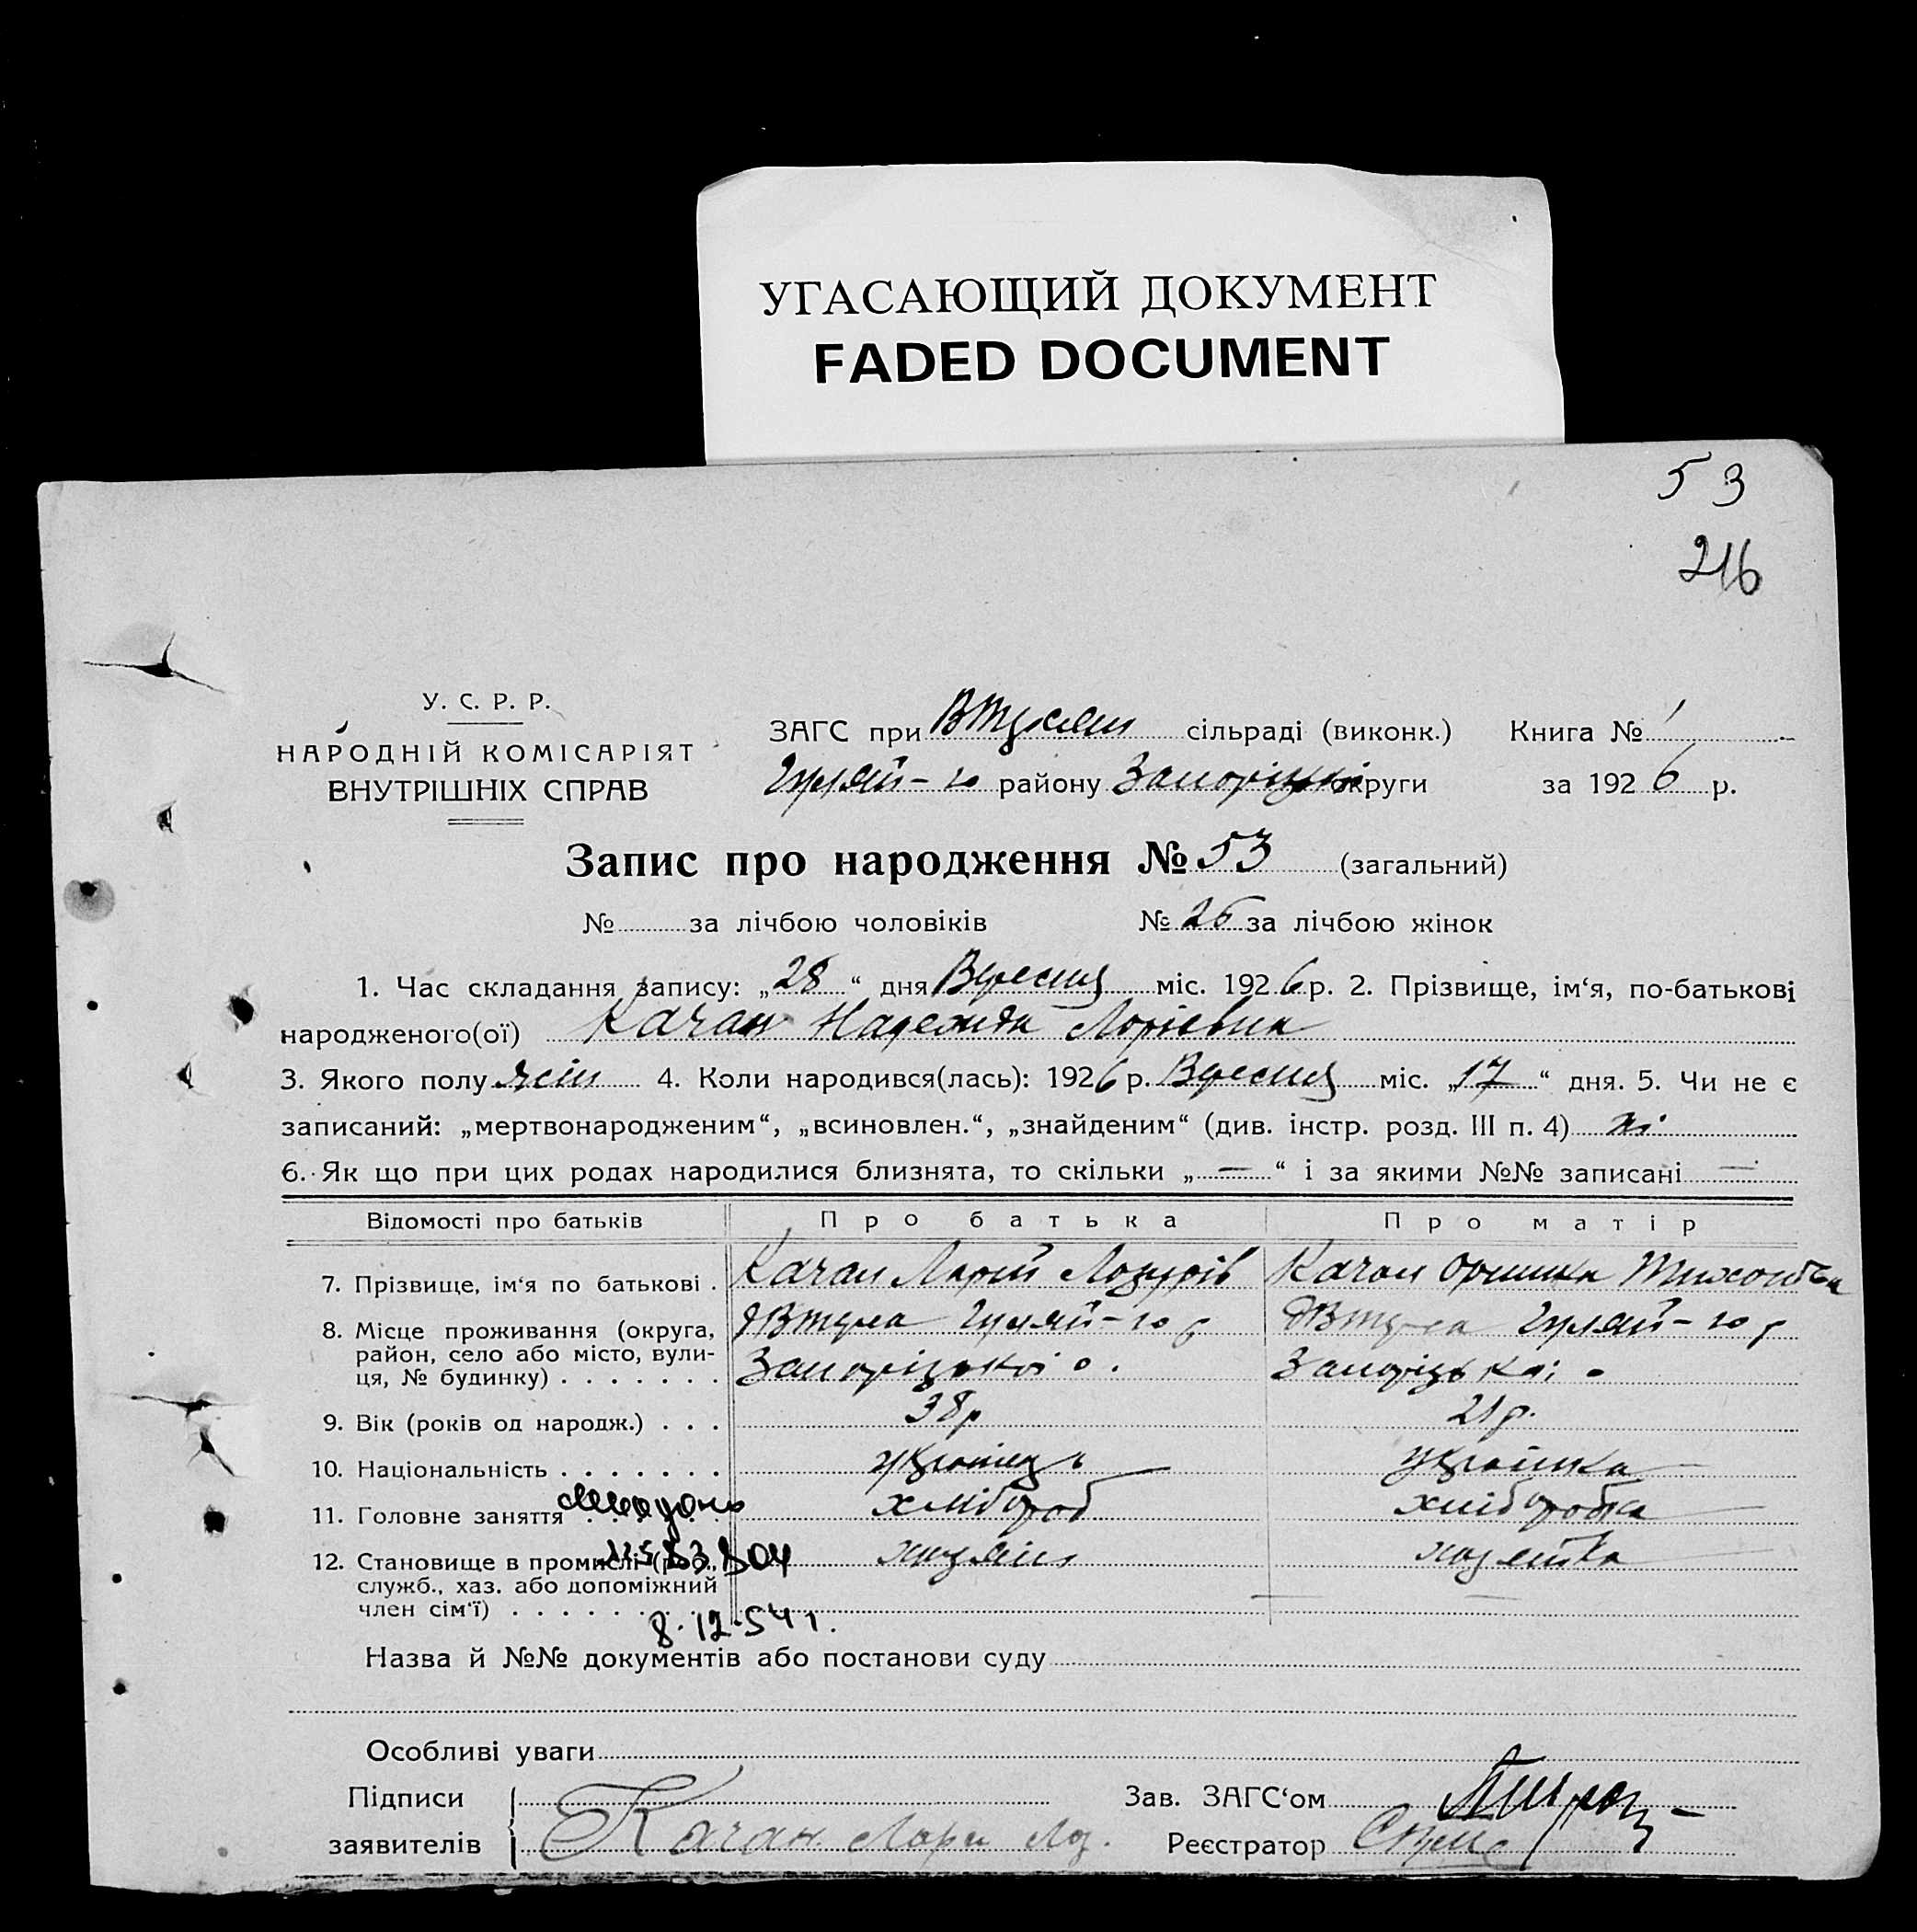 УГАСАЮЩИЙ ДОКУМЕНТ
FADED DOCUMENT
53
216
У. С. Р. Р.
НАРОДНІЙ КОМІСАРІЯТ
ВНУТРІШНІХ СПРАВ
ЗАГС при сільраді (виконк.) Книга № 1
Гуляй-го району Запорізької округи за 1926 р.
Запис про народження № 53 (загальний)
№ за лічбою чоловіків № 26 за лічбою жінок
1. Час складання запису: „28“ дня Вересня міс. 1926 р. 2. Прізвище, ім‘я, по-батькові
народженого(ої) Качан Надежда Лорієвна
3. Якого полу жін 4. Коли народився(лась): 1926 р. Вересня міс. „17“ дня. 5. Чи не є
записаний: „мертвонародженим“, „всиновлен.“, „знайденим“ (див. інстр. розд. III п. 4) ні
6. Як що при цих родах народилися близнята, то скільки „—“ і за якими №№ записані —
Відомості про батьків Про батька Про матір
7. Прізвище, ім‘я по батькові . Качан Ларій Качан Оришка
8. Місце проживання (округа, Гуляй-го р Гуляй-го р
район, село або місто, вули-
ця, № будинку) . . . . . . . Запорізької о. Запорізької о
9. Вік (років од народж.) . . . 38р 21р.
10. Національність . . . . . . . українець українка
11. Головне заняття хлібороб хліборобка
12. Становище в промислі (роб., хазяїн хазяйка
служб., хаз. або допоміжний
член сім‘ї) . . . . . .
8.12.54 г.
Назва й №№ документів або постанови суду
Особливі уваги
Підписи Зав. ЗАГС‘ом
заявителів Качан Лари Лаз. Реєстратор